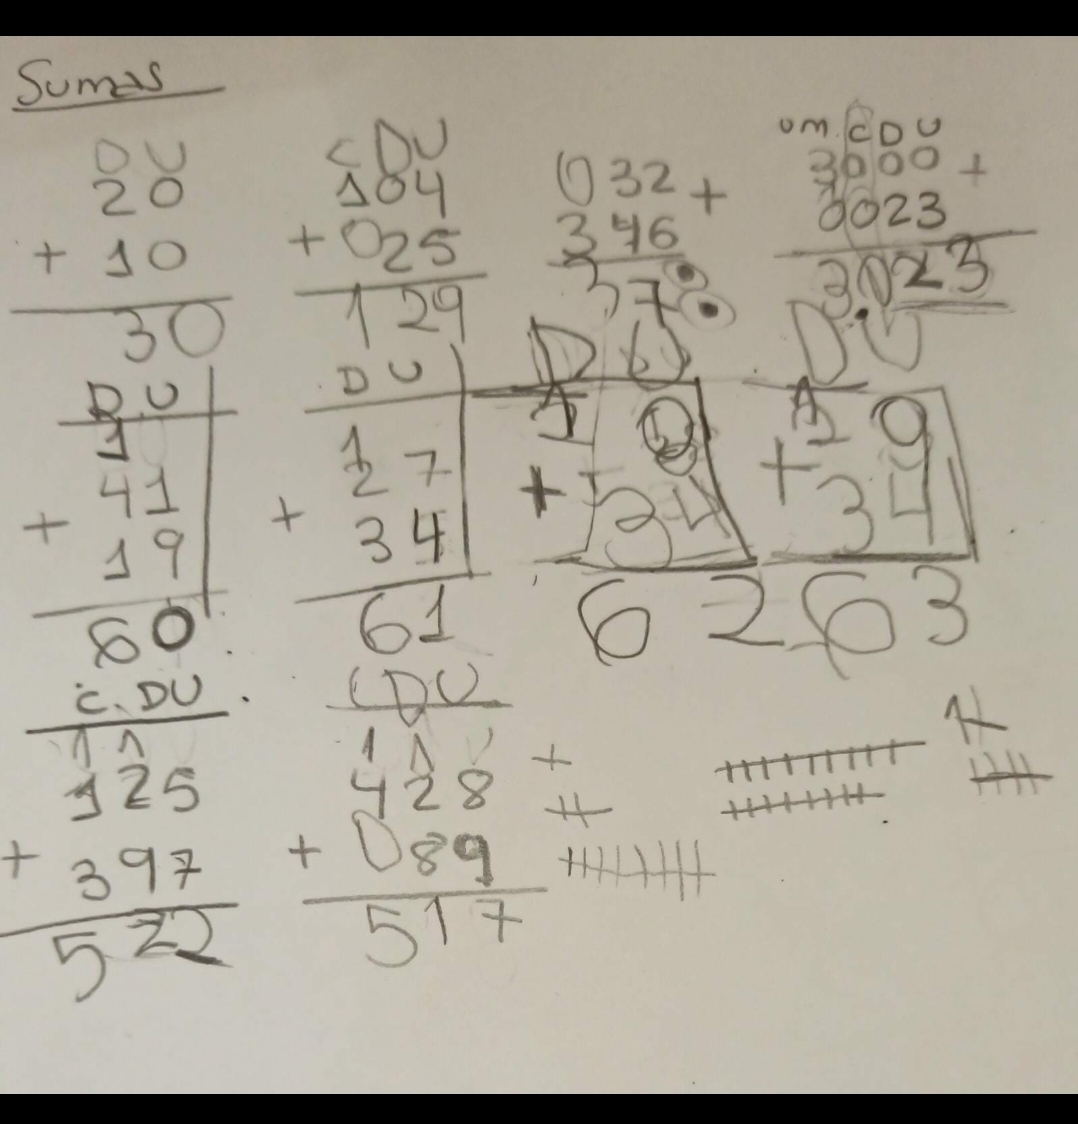 Sumas
D U
20
+ 10
30
C D U
104
+ 025
129
032 +
346
378
UM C D U
3000 +
0023
3023
D U
1
41
+ 19
60
D U
1
27
+ 34
61
D U
1
+ 34
62
D U
1
+ 34
63
C. D U
1 1
125
+ 397
522
C D U
1 1
428
+ 089
517
+